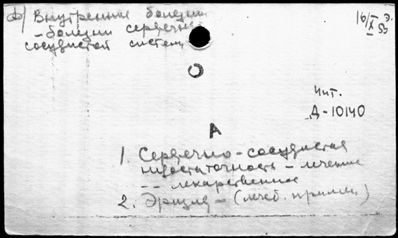 ф) Внутренние болезни
- болезни сердечно
сосудистой систем
16/X Э.
Х 55
Чит.
Д-10140
А
1. Сердечно-сосудистая
недостаточность - лечение
-- лекарственное
2. Эризид - (леч. примен.)